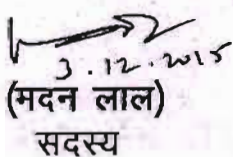 3.12.2015
(मदन लाल)
सदस्य